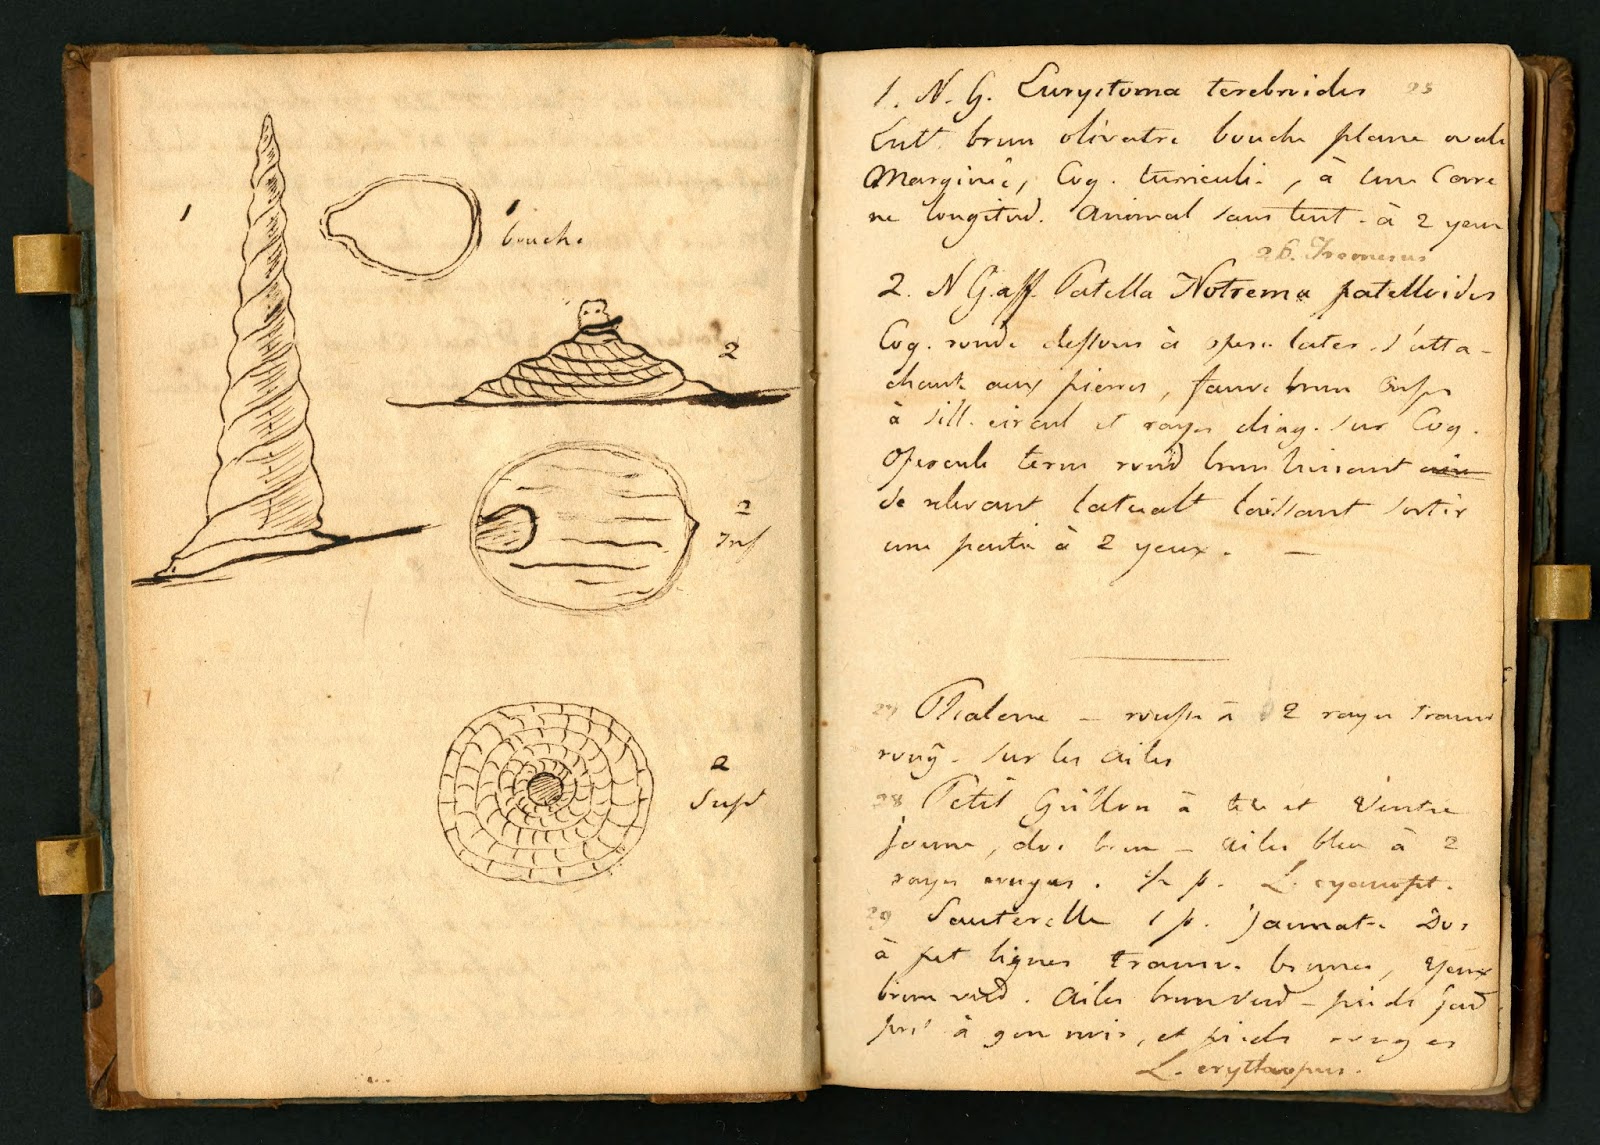 1
1
bouche
2
2
Inf
2
Supr
1. N. G. Eurystoma terebroides 25
brun olivatre bouche plane ovale
Marginée, Coq. turriculée, à une Carre
ne longitud. animal sans tent. à 2 yeux
26.
2. N G. aff. Patella Notrema patelloides
Coq. ronde dessous à operc later. s'atta-
chant aux pierres, fauve brun
à sill. circul et rayes diag. sur Coq.
Opercule term rond brun luisant
se relevant lateralt laissant sortir
une partie à 2 yeux. —
27 Phalene — rousse à 2 rayes transv
roug. sur les ailes
28 Petit Grillon à tete et Ventre
jaune, dos brun — ailes bleu à 2
rayes rouges. ½ p. L. cyanopt.
29 Sauterelle 1 p. jaunatre Dos
à pet lignes transv. brunes, yeux
brun verd. ailes brun verd — pieds
à gen noir, et pieds rouges
L. erythropus.